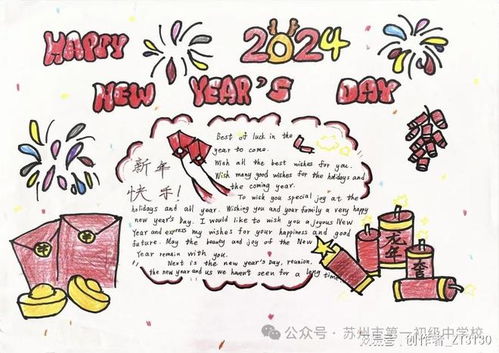 HAPPY 2024
NEW YEAR'S DAY
新年
快乐!
Best of luck in the
year to come.
Wish all the best wishes for you.
Wish many good wishes for the holidays and
the coming year.
To wish you special joy at the
holidays and all year. Wishing you and your family a very happy
new year's day. I would like to wish you a joyous New
Year and express my wishes for your happiness and good
future. May the beauty and joy of the New
Year remain with you.
Next is the new year's day, reunion,
the new year and us we haven't seen for a long time.
龙年
公众号 · 苏州市第一初级中学校